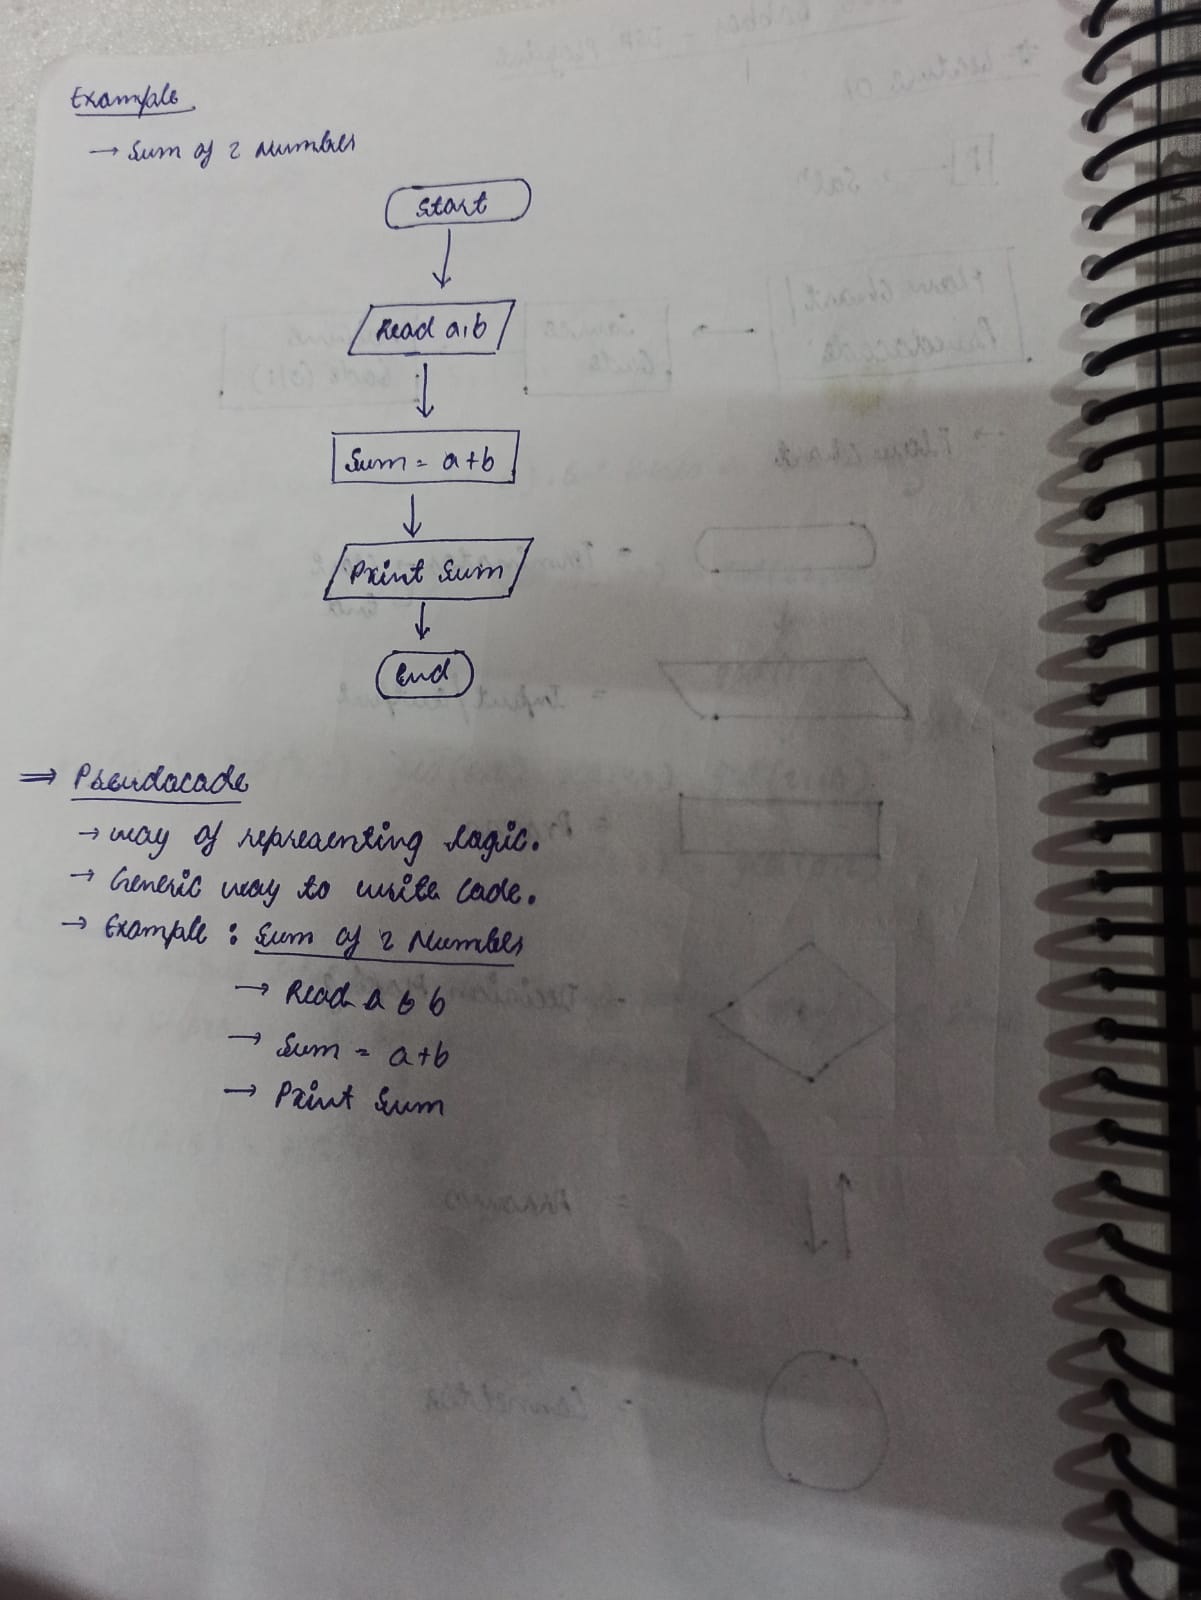 Example
→ Sum of 2 Number
Start
Read a,b
Sum = a+b
Print Sum
End
⇒ Pseudocode
→ way of representing logic.
→ Generic way to write code.
→ Example : Sum of 2 Number
→ Read a & b
→ Sum = a+b
→ Print Sum